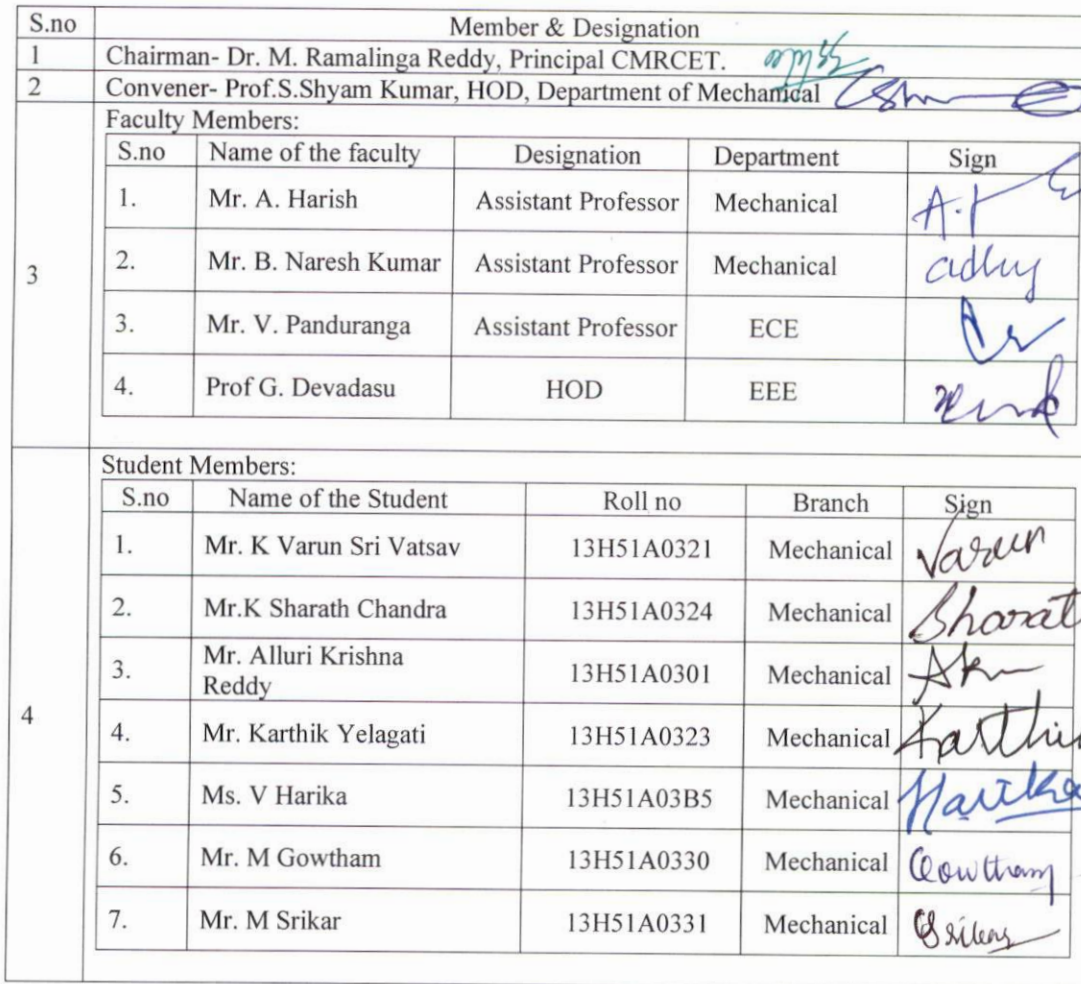 S.no Member & Designation
1 Chairman- Dr. M. Ramalinga Reddy, Principal CMRCET.
2 Convener- Prof.S.Shyam Kumar, HOD, Department of Mechanical
3 Faculty Members:
S.no Name of the faculty Designation Department Sign
1. Mr. A. Harish Assistant Professor Mechanical
2. Mr. B. Naresh Kumar Assistant Professor Mechanical
3. Mr. V. Panduranga Assistant Professor ECE
4. Prof G. Devadasu HOD EEE
4 Student Members:
S.no Name of the Student Roll no Branch Sign
1. Mr. K Varun Sri Vatsav 13H51A0321 Mechanical Varun
2. Mr.K Sharath Chandra 13H51A0324 Mechanical
3. Mr. Alluri Krishna
Reddy 13H51A0301 Mechanical
4. Mr. Karthik Yelagati 13H51A0323 Mechanical
5. Ms. V Harika 13H51A03B5 Mechanical Harika
6. Mr. M Gowtham 13H51A0330 Mechanical Gowtham
7. Mr. M Srikar 13H51A0331 Mechanical